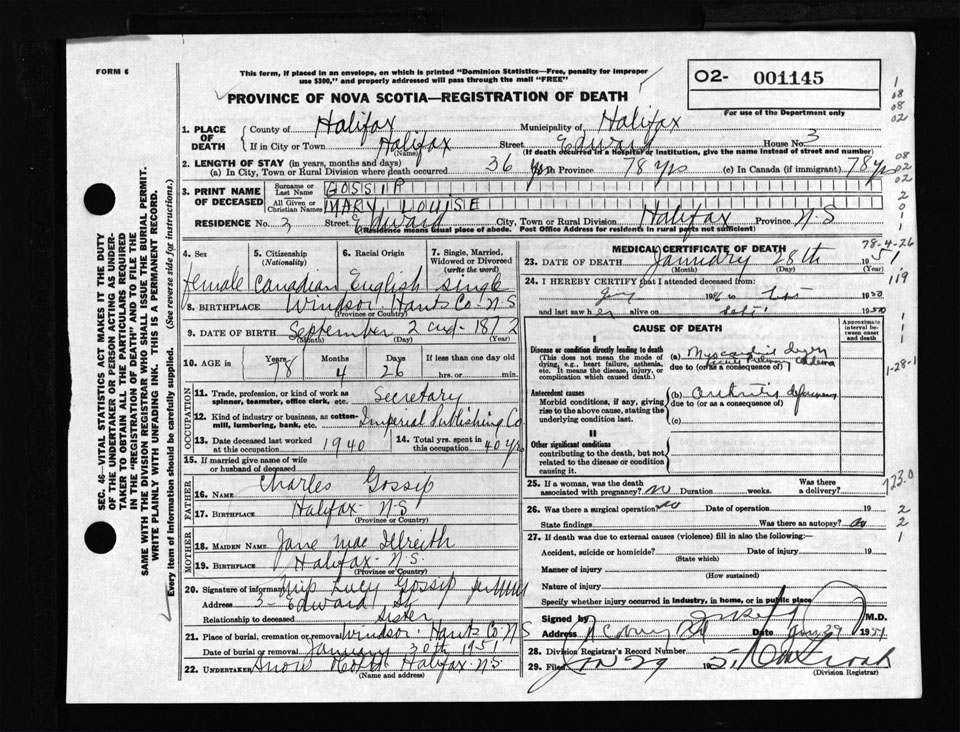 FORM 6
This form, if placed in an envelope, on which is printed "Dominion Statistics—Free, penalty for improper
use $300," and properly addressed will pass through the mail "FREE"
O2- 001145
For use of the Department only
PROVINCE OF NOVA SCOTIA—REGISTRATION OF DEATH
1. PLACE OF DEATH { County of Halifax Municipality of Halifax
If in City or Town Halifax (Name) Street Edward House No. 3
(If death occurred in a hospital or institution, give name instead of street and number)
2. LENGTH OF STAY (in years, months and days)
(a) In City, Town or Rural Division where death occurred 36 yrs (b) In Province 78 yrs (c) In Canada (if immigrant) 78 yrs
3. PRINT NAME OF DECEASED { Surname or Last Name GOSSIP
All Given or Christian Names MARY LOUISE
RESIDENCE No. 3 Street Edward City, Town or Rural Division Halifax Province N S
(Residence means usual place of abode. Post Office Address for residents in rural parts not sufficient)
4. SEX 5. Citizenship (Nationality) 6. Racial Origin 7. Single, Married, Widowed or Divorced (write the word)
Female Canadian English Single
8. BIRTHPLACE Windsor Hants Co N S
(Province or Country)
9. DATE OF BIRTH September 2nd 1872
(Month) (Day) (Year)
10. AGE in { Years 78 Months 4 Days 26 If less than one day old hrs. or min.
OCCUPATION
11. Trade, profession, or kind of work as spinner, teamster, office clerk, etc. Secretary
12. Kind of industry or business, as cotton-mill, lumbering, bank, etc. Imperial Publishing Co
13. Date deceased last worked at this occupation 1940 14. Total yrs. spent in this occupation 40 yrs
15. If married give name of wife or husband of deceased
FATHER
16. NAME Charles Gossip
17. BIRTHPLACE Halifax N S
(Province or Country)
MOTHER
18. MAIDEN NAME Jane Mac Ilreith
19. BIRTHPLACE Halifax N.S.
(Province or Country)
20. Signature of informant Miss Lucy Gossip
Address 3- Edward St
Relationship to deceased Sister
21. Place of burial, cremation or removal Windsor Hants Co N S
Date of burial or removal January 30th 1951
22. UNDERTAKER Snow Halifax N.S.
(Name and address)
MEDICAL CERTIFICATE OF DEATH
23. DATE OF DEATH January 28th 1951
(Month) (Day)
24. I HEREBY CERTIFY that I attended deceased from:
19 to 1950
and last saw her alive on 1950
CAUSE OF DEATH
Approximate interval between onset and death
I
Disease or condition directly leading to death
(This does not mean the mode of dying, e.g., heart failure, asthma, etc. It means the disease, injury, or complication which caused death.)
(a)
due to (or as a consequence of)
Antecedent causes
Morbid conditions, if any, giving rise to the above cause, stating the underlying condition last.
(b) Arthritis
due to (or as a consequence of)
(c)
II
Other significant conditions
contributing to the death, but not related to the disease or condition causing it.
25. If a woman, was the death associated with pregnancy? no Duration weeks. Was there a delivery?
26. Was there a surgical operation? no Date of operation 19
State findings Was there an autopsy? no
27. If death was due to external causes (violence) fill in also the following:
Accident, suicide or homicide? Date of injury 19
(State which)
Manner of injury
(How sustained)
Nature of injury
Specify whether injury occurred in Industry, in home, or in public place
Signed by M.D.
Address Date Jan 29 1951
28. Division Registrar's Record Number
29. Filed Jan 29 1951
(Division Registrar)
SEC. 46—VITAL STATISTICS ACT MAKES IT THE DUTY
OF THE UNDERTAKER OR PERSON ACTING AS UNDER-
TAKER TO OBTAIN ALL THE PARTICULARS REQUIRED
IN THE "REGISTRATION OF DEATH" AND TO FILE THE
SAME WITH THE DIVISION REGISTRAR WHO SHALL ISSUE THE BURIAL PERMIT.
WRITE PLAINLY WITH UNFADING INK. THIS IS A PERMANENT RECORD.
Every item of information should be carefully supplied. (See reverse side for instructions.)
1
08
08
02
08
02
02
2
0
1
1
78-4-26
119
1
1
1
1-28-1
723.0
2
2
1